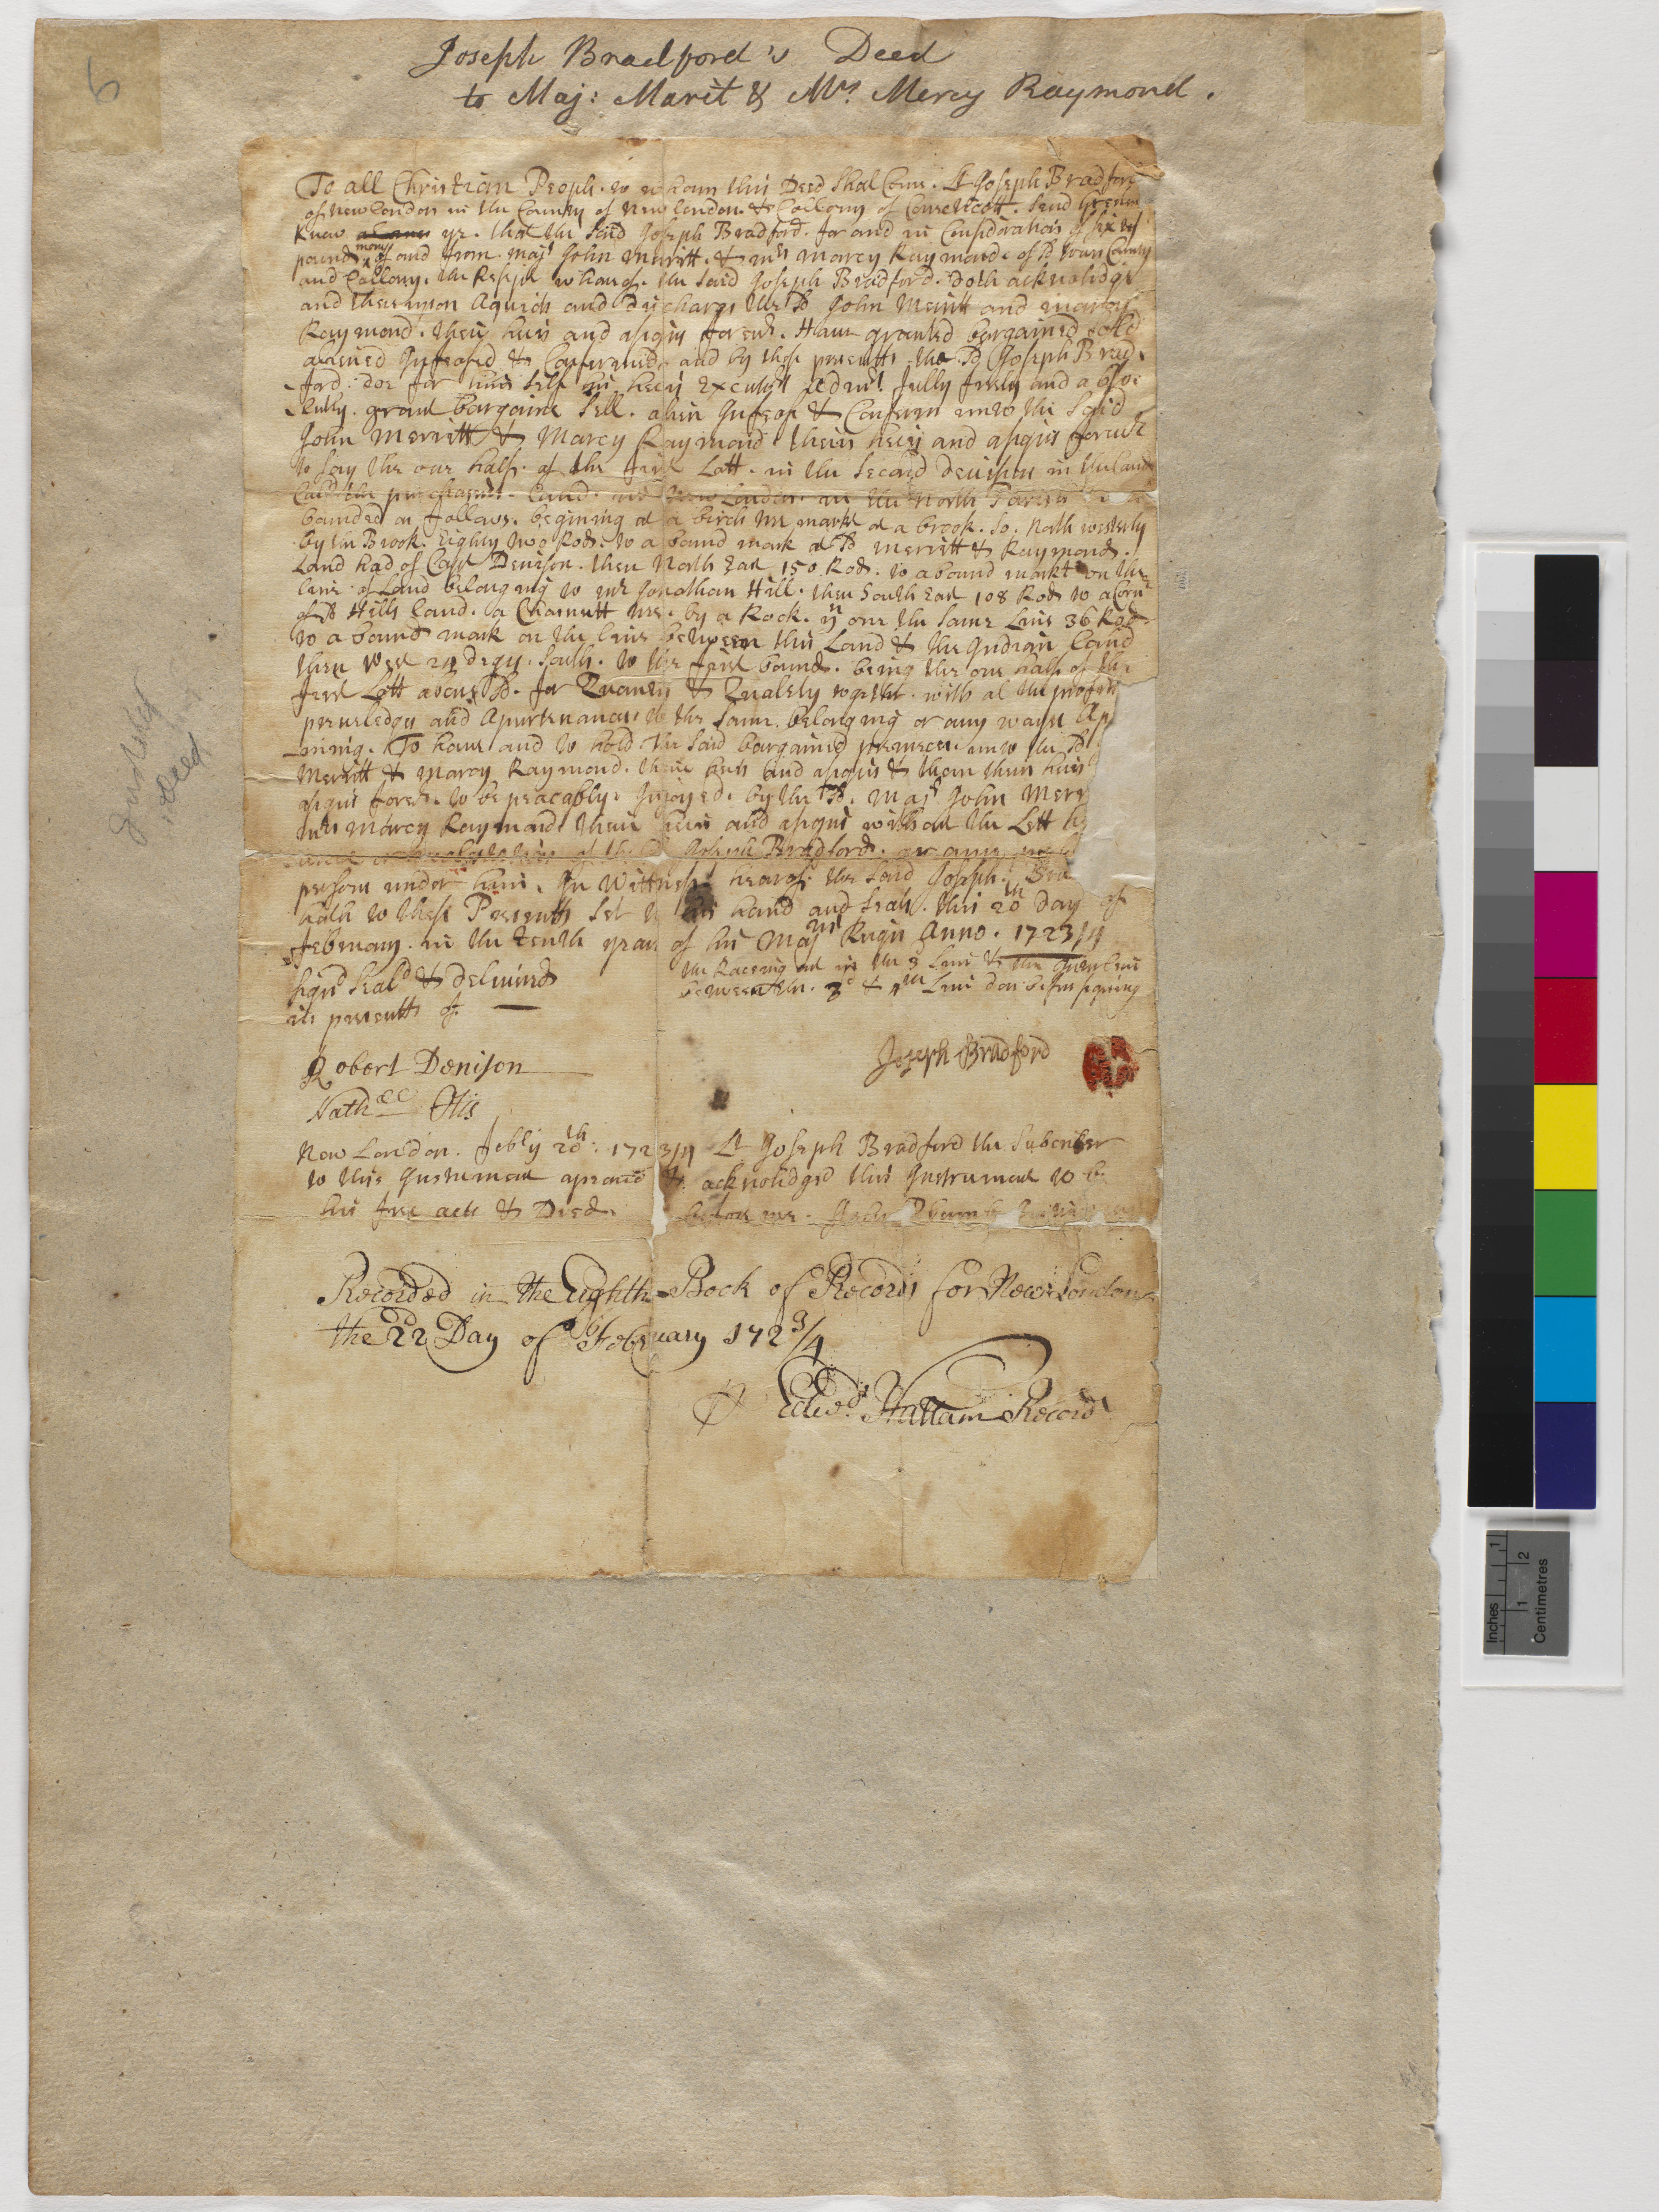 6
Joseph Bradford's Deed
to Maj: Marit & Mrs. Mercy Raymond.
To all Christian People. to whom this Deed Shal Come. Lt Joseph Bradford
of New London in the County of New London. & Collony of Conneticott. Send
Know ye. that the Said Joseph Bradford. for and in Consideration of Sixty
pound mony of and from. Majr John Merritt. & mrs Marcy Raymond. of sd Town County
and Collony. the Resept whareof. the Said Joseph Bradford. doth acknolidge
and thereupon Aquich and discharge the sd John Merritt and Marcy
Raymond. their heirs and asigns forever. Have granted bargained sold
aliened Infeofed & Confirmed. and by these presents. the sd Joseph Brad
ford. doe for him Self his heirs Executrs Admrs. fully freely and abso
lutly. grant bargaine Sell. alien Infeof & Conferm unto the Said
John Merritt & Marcy Raymond. their heirs and asigns forever
to Say the one halfe. of the first Lott. in the Second devision in the land
Called the purchased. land. New London. in the North Parish
bounded as follows. begining at a birch tree markt at a brook. So. North westerly
by the Brook. Eighty two Rods. to a bound mark at sd Merritt & Raymonds.
Land had of Capt Denison. then North East 150. Rods. to a bound markt on the
line of Land belonging to mr Jonathan Hill. then South East 108 Rods to a Corn
of sd Hills land. a Chesnutt tree. by a Rock. yn one the Same Line 36 Rods
to a bound mark on the line between this Land & the Indian land
then West 24 degrs. South. to the first bound. being the one half of the
first Lott above sd. for Quanty & Qualety together. with al the profits
preveledgs and Apurtenances to the Same. belonging or any wayse Ap
ining. To have and to hold The Said bargained premeces. unto the sd
Merritt & Marcy Raymond. their heirs and asigns & them their heirs
asigns forever. to be peacably. Injoyed. by the sd. Majr John Merr
mrs Marcy Raymond their heirs and asigns without the Lett
of the sd Joseph Bradford. or any
persons under him. In Wittness heareof. the Said Joseph. Bra
hath to these Presents Set to his hand and Seale. this 20th Day of
February. in the tenth year of his Majtis Reign Anno. 1723/4
Signd Seald & Deliuerd
in presents of.
the Raceing out in the 3 Line & the Interline
between the. 3d & 4th Line don before signing
Joseph Bradford
Robert Denison
Nathaell Otis
New London. Febry 20th: 1723/4 Lt Joseph Bradford the Subcriber
to this Instrument apeared & acknolidged this Instrument to be
his free act & Deed. before me.
Recorded in the Eighth Book of Records for New London
the 22 Day of February 1723/4
Edwd. Hallam Record